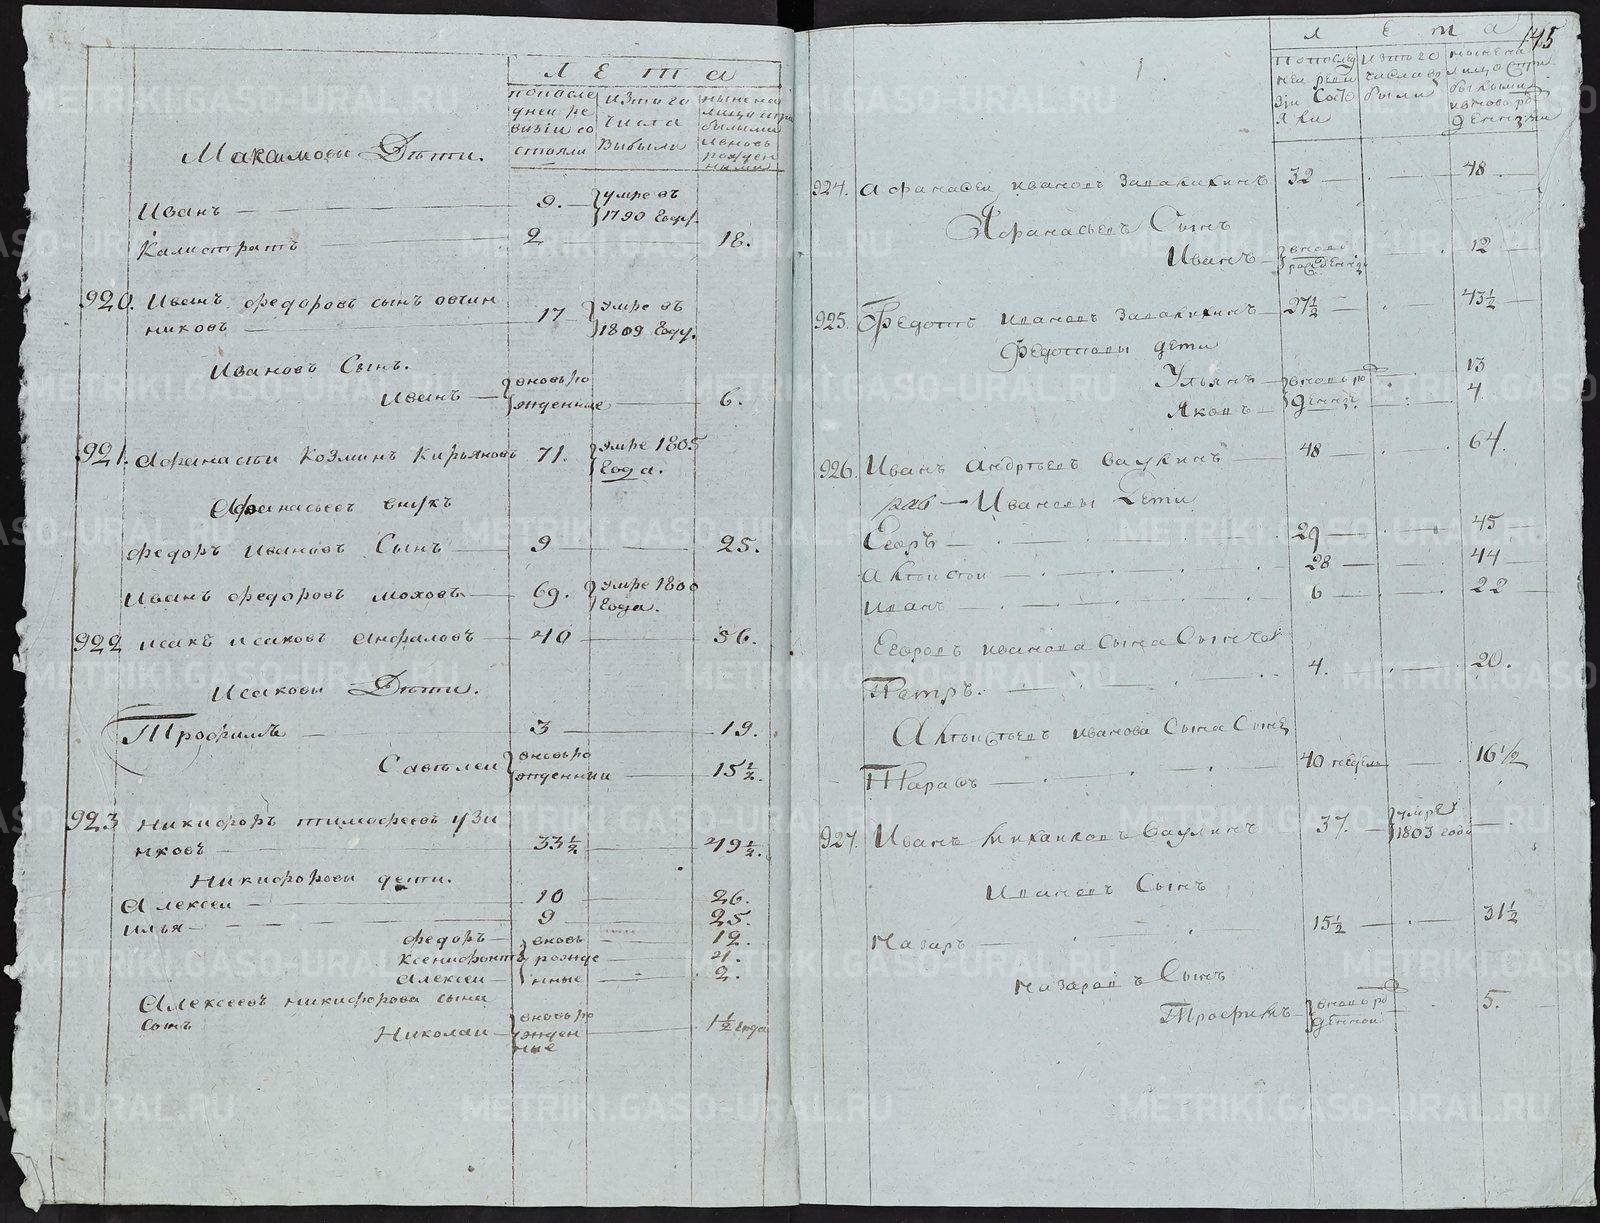 Лета
по после дней ревизіи состояли
изъ того числа выбыли
ныне на лицо
Максимовы Дѣти.
Иванъ — 9. умре въ 1790 году
Калистратъ 2 18.
920. Иванъ федоровъ сынъ овчин
никовъ 17 умре въ 1809 году.
Ивановъ Сынъ.
Иванъ — вновь ро жденные 6.
921. Афанасеи Козминъ Кирьяновъ 71. умре 1805 Года.
Афанасьевъ внукъ
федоръ Ивановъ Сынъ 9 25.
Иванъ федоровъ моховъ 69. умре 1800 Года.
922 исакъ исаковъ Анфаловъ 40 56.
Исаковы Дѣти.
Трофимъ 3 19.
Савелеи вновь ро жденнии 15 1/2.
923 Никифоръ тимофеевъ узи
нковъ 33 1/2 49 1/2.
Никифоровы дети.
Алексеи — 10 26.
илья — 9 25.
федоръ — вновь 12.
Ксенифонтъ рожде 4.
Алексеи — нные 2.
Алексеевъ никифорова сына
сынъ
Николаи — вновь ро жден ние 1 1/2 года
145
Лета
924. Афанасеи ивановъ 32 48
Афанасьевъ Сынъ
Иванъ — вновь рожденнъ 12
925. Федотъ ивановъ 27 1/2 43 1/2
Федотовы дети
Ульянъ — вновь ро 13
Яковъ — 4.
926. Иванъ андреевъ Ваулинъ 48 64.
Ивановы Дети
Егоръ — 29 45
28 44
Иванъ — 6 22
Егоровъ иванова сына Сынъ
Петръ. 4. 20.
иванова Сына Сынъ
Тарасъ 40 недель 16 1/2
927. Иванъ михаиловъ Ваулинъ 37. умре 1803 года
Ивановъ Сынъ
Назаръ 15 1/2 31 1/2
Назаровъ Сынъ
Трофимъ — вновь ро денной 5.
METRIKI.GASO-URAL.RU